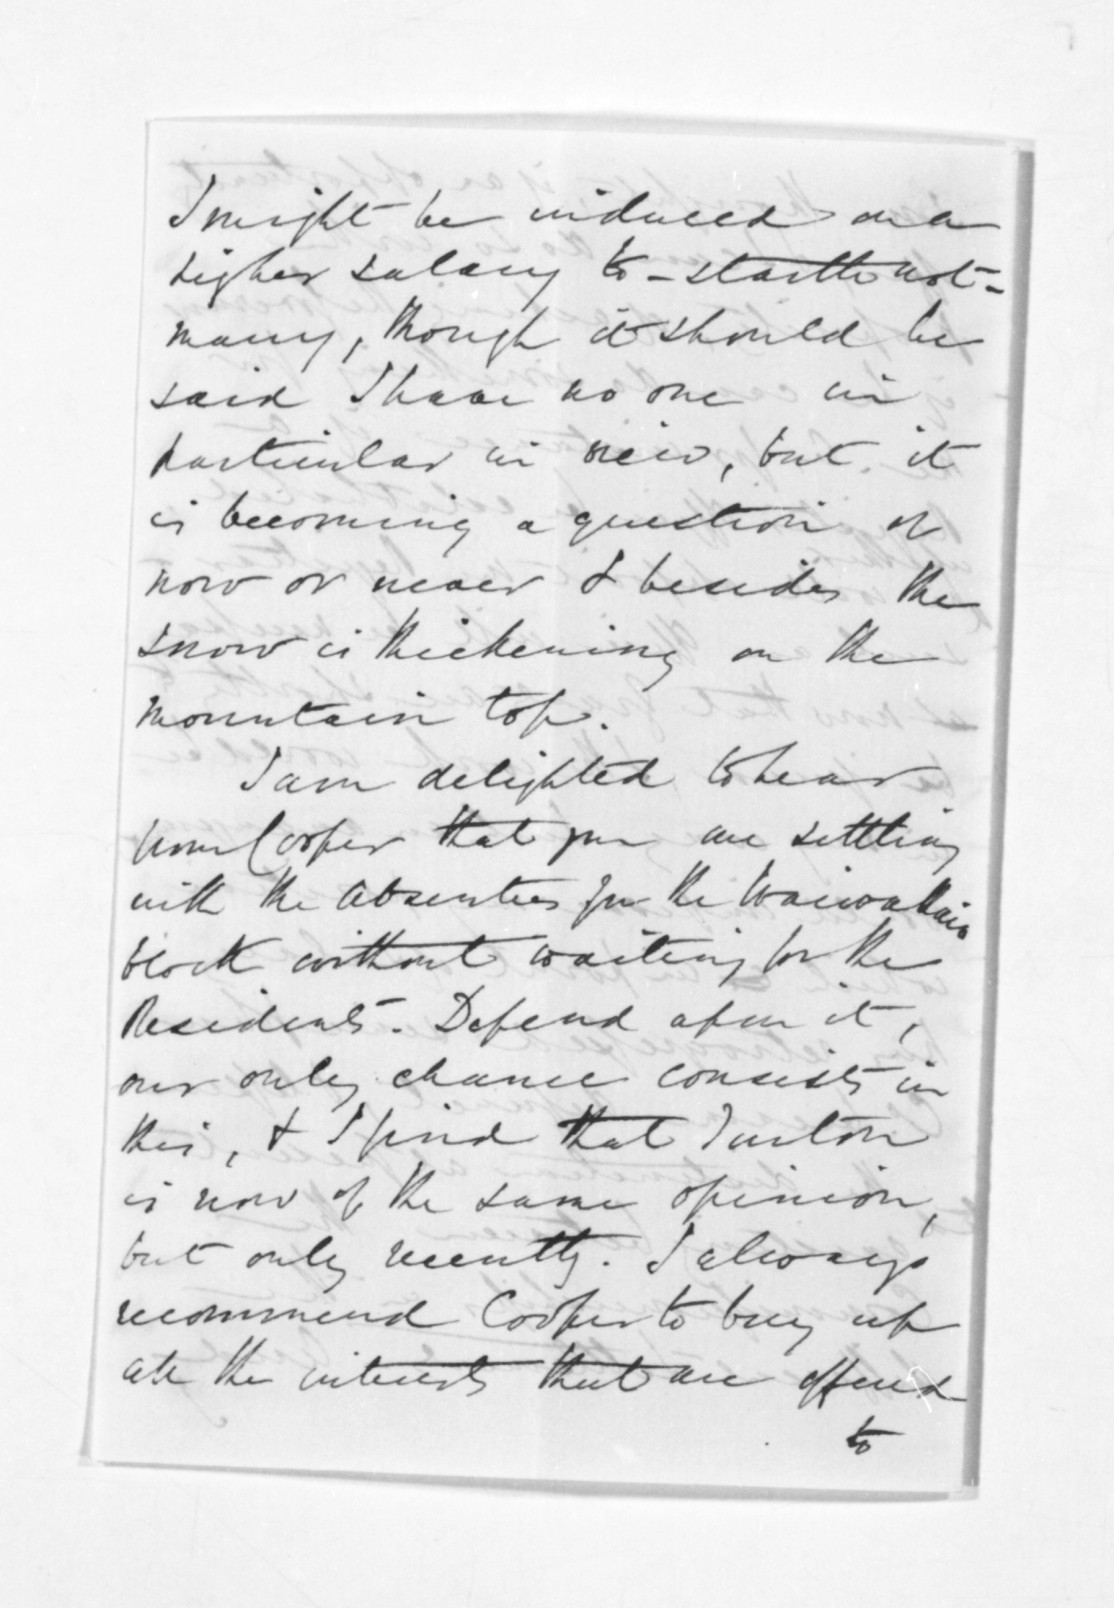 I might be induced on a
higher salary to - startle not -
many, though it should be
said I have no one in
particular in view, but it
is becoming a question of
now or never & besides the
snow is thickening on the
mountain top.
I am delighted to hear
from Cooper that you are settling
with the Absentees for the
block without waiting for the
Residents. Depend upon it,
our only chance consists in
this, & I find that Turton
is now of the same opinion,
but only recently. I always
recommend Cooper to buy up
all the interests that are offered
to